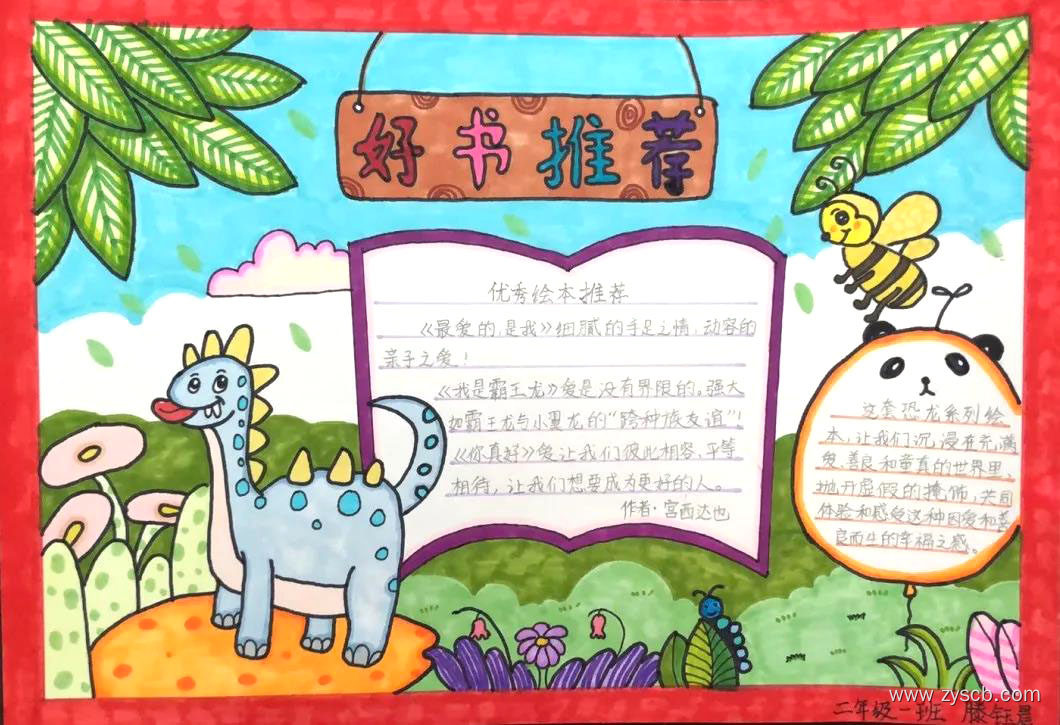 好书推荐
优秀绘本推荐
《最爱的,是我》细腻的手足之情,动容的
亲子之爱!
《我是霸王龙》爱是没有界限的。强大
如霸王龙与小翼龙的“跨种族友谊”!
《你真好》爱让我们彼此相容、平等
相待,让我们想要成为更好的人。
作者·宫西达也
这套恐龙系列绘
本,让我们沉,浸在充满
爱、善良和童真的世界里,
抛开虚假的掩饰,共同
体验和感受这种因爱和善
良而生的幸福之感。
www.zyscb.com
二年级一班 滕钰